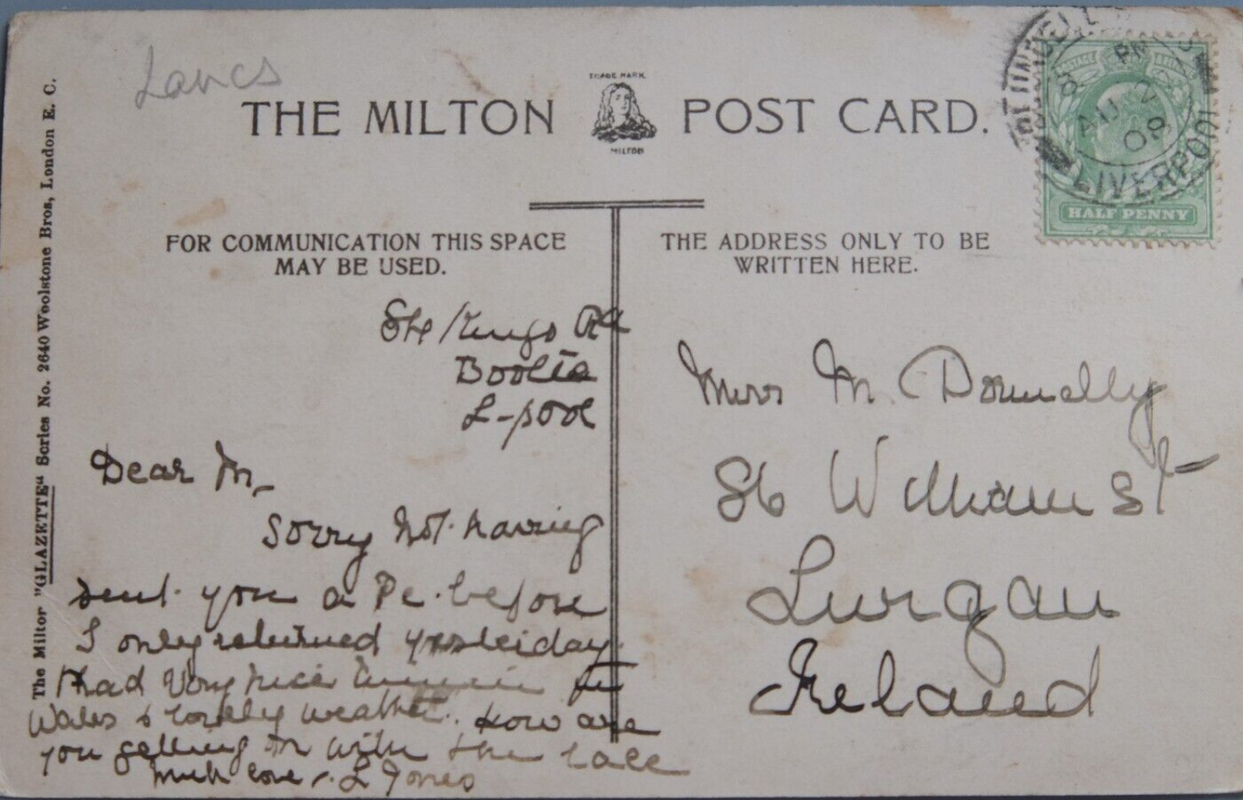 Lancs
THE MILTON POST CARD.
TRADE MARK
MILTON
The Milton "GLAZETTE" Series No. 2640 Woolstone Bros, London E. C.
FOR COMMUNICATION THIS SPACE
MAY BE USED.
THE ADDRESS ONLY TO BE
WRITTEN HERE.
8 PM
AU 2
08
LIVERPOOL
HALF PENNY
Kings Rd
Bootle
L-pool
Dear M,
Sorry not having
sent you a Pc. before
I only returned yesterday.
Had Very nice in
Wales & lovely weather. How are
you getting on with the lace
much love L Jones
Miss M. Donnelly
86 William St
Lurgan
Ireland